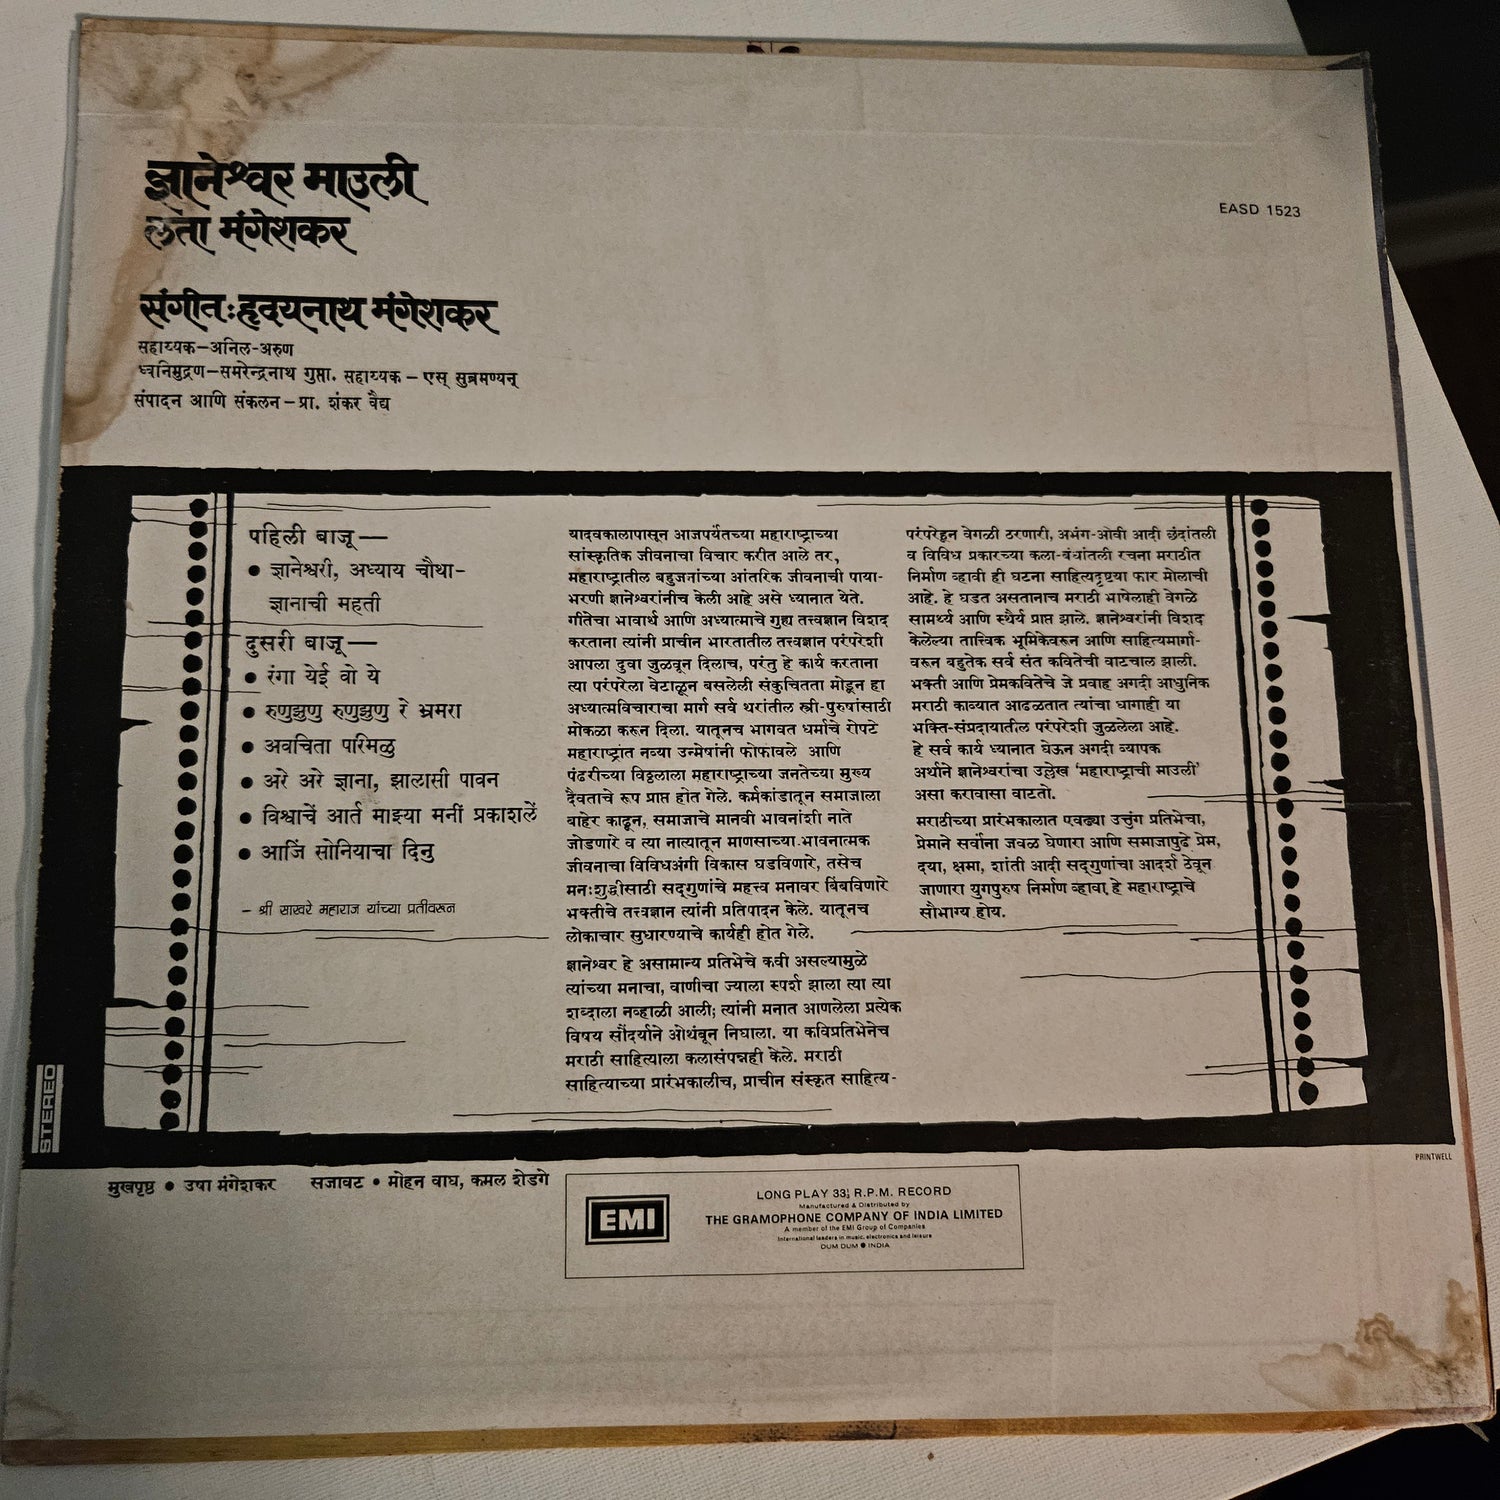 ज्ञानेश्वर माउली
लता मंगेशकर
संगीत:हृदयनाथ मंगेशकर
सहाय्यक–अनिल-अरुण
ध्वनिमुद्रण–समरेन्द्रनाथ गुप्ता. सहाय्यक – एस् सुब्रमण्यन्
संपादन आणि संकलन – प्रा. शंकर वैद्य
EASD 1523
पहिली बाजू —
• ज्ञानेश्वरी, अध्याय चौथा-
ज्ञानाची महती
दुसरी बाजू —
• रंगा येई वो ये
• रुणुझुणु रुणुझुणु रे भ्रमरा
• अवचिता परिमळु
• अरे अरे ज्ञाना, झालासी पावन
• विश्वाचें आर्त माझ्या मनीं प्रकाशलें
• आजिं सोनियाचा दिनु
– श्री साखरे महाराज यांच्या प्रतीवरून
यादवकालापासून आजपर्यंतच्या महाराष्ट्राच्या
सांस्कृतिक जीवनाचा विचार करीत आले तर,
महाराष्ट्रातील बहुजनांच्या आंतरिक जीवनाची पाया-
भरणी ज्ञानेश्वरांनीच केली आहे असे ध्यानात येते.
गीतेचा भावार्थ आणि अध्यात्माचे गुह्य तत्त्वज्ञान विशद
करताना त्यांनी प्राचीन भारतातील तत्त्वज्ञान परंपरेशी
आपला दुवा जुळवून दिलाच, परंतु हे कार्य करताना
त्या परंपरेला वेटाळून बसलेली संकुचितता मोडून हा
अध्यात्मविचाराचा मार्ग सर्व थरांतील स्त्री-पुरुषांसाठी
मोकळा करून दिला. यातूनच भागवत धर्माचे रोपटे
महाराष्ट्रांत नव्या उन्मेषांनी फोफावले आणि
पंढरीच्या विठ्ठलाला महाराष्ट्राच्या जनतेच्या मुख्य
दैवताचे रूप प्राप्त होत गेले. कर्मकांडातून समाजाला
बाहेर काढून, समाजाचे मानवी भावनांशी नाते
जोडणारे व त्या नात्यातून माणसाच्या भावनात्मक
जीवनाचा विविधअंगी विकास घडविणारे, तसेच
मनःशुद्धीसाठी सद्‌गुणांचे महत्त्व मनावर बिंबविणारे
भक्तीचे तत्त्वज्ञान त्यांनी प्रतिपादन केले. यातूनच
लोकाचार सुधारण्याचे कार्यही होत गेले.
ज्ञानेश्वर हे असामान्य प्रतिभेचे कवी असल्यामुळे
त्यांच्या मनाचा, वाणीचा ज्याला स्पर्श झाला त्या त्या
शब्दाला नव्हाळी आली; त्यांनी मनात आणलेला प्रत्येक
विषय सौंदर्याने ओथंबून निघाला. या कविप्रतिभेनेच
मराठी साहित्याला कलासंपन्नही केले. मराठी
साहित्याच्या प्रारंभकालीच, प्राचीन संस्कृत साहित्य-
परंपरेहून वेगळी ठरणारी, अभंग-ओवी आदी छंदांतली
व विविध प्रकारच्या कला-बंधांतली रचना मराठीत
निर्माण व्हावी ही घटना साहित्यदृष्ट्या फार मोलाची
आहे. हे घडत असतानाच मराठी भाषेलाही वेगळे
सामर्थ्य आणि स्थैर्य प्राप्त झाले. ज्ञानेश्वरांनी विशद
केलेल्या तात्त्विक भूमिकेवरून आणि साहित्यमार्गा-
वरून बहुतेक सर्व संत कवितेची वाटचाल झाली.
भक्ती आणि प्रेमकवितेचे जे प्रवाह अगदी आधुनिक
मराठी काव्यात आढळतात त्यांचा धागाही या
भक्ति-संप्रदायातील परंपरेशी जुळलेला आहे.
हे सर्व कार्य ध्यानात घेऊन अगदी व्यापक
अर्थाने ज्ञानेश्वरांचा उल्लेख ‘महाराष्ट्राची माउली’
असा करावासा वाटतो.
मराठीच्या प्रारंभकालात एवढ्या उत्तुंग प्रतिभेचा,
प्रेमाने सर्वांना जवळ घेणारा आणि समाजापुढे प्रेम,
दया, क्षमा, शांती आदी सद्‌गुणांचा आदर्श ठेवून
जाणारा युगपुरुष निर्माण व्हावा, हे महाराष्ट्राचे
सौभाग्य होय.
STEREO
PRINTWELL
मुखपृष्ठ • उषा मंगेशकर सजावट • मोहन वाघ, कमल शेडगे
EMI
LONG PLAY 33⅓ R.P.M. RECORD
Manufactured & Distributed by
THE GRAMOPHONE COMPANY OF INDIA LIMITED
A member of the EMI Group of Companies
International leaders in music, electronics and leisure
DUM DUM ● INDIA